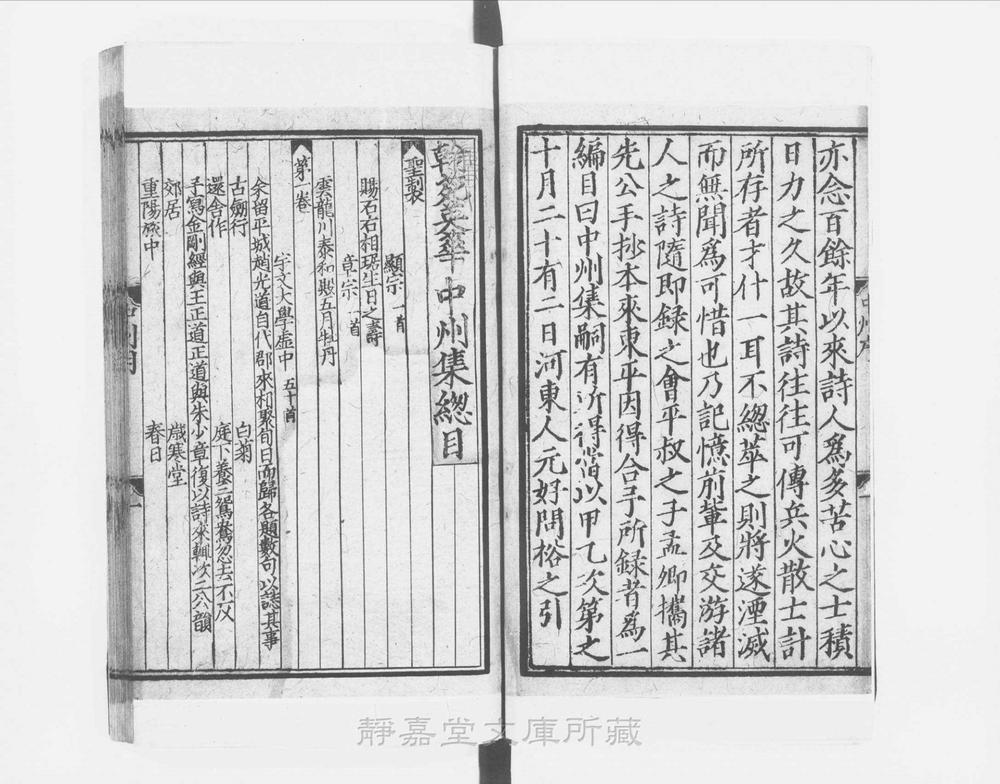 亦念百餘年以來詩人爲多苦心之士積
日力之久故其詩往往可傳兵火散亡計
所存者才什一耳不總萃之則將遂湮滅
而無聞爲可惜也乃記憶前輩及交游諸
人之詩隨即録之會平叔之子孟卿攜其
先公手抄本來東平因得合予所録者爲一
編目曰中州集嗣有所得當以甲乙次第之
十月二十有二日河東人元好問裕之引
翰苑英華中州集總目
聖製
顯宗 一首
賜石右相琚生日之壽
章宗 一首
雲龍川泰和殿五月牡丹
第一卷
宇文大學虛中 五十首
余留平城趙光道自代郡來相聚旬日而歸各題數句以誌其事
古劒行 白菊
還舍作 庭下養三鴛鴦忽去不反
予寫金剛經與王正道正道與朱少章復以詩來輒次二公韻
郊居 歲寒堂
重陽旅中 春日
靜嘉堂文庫所藏